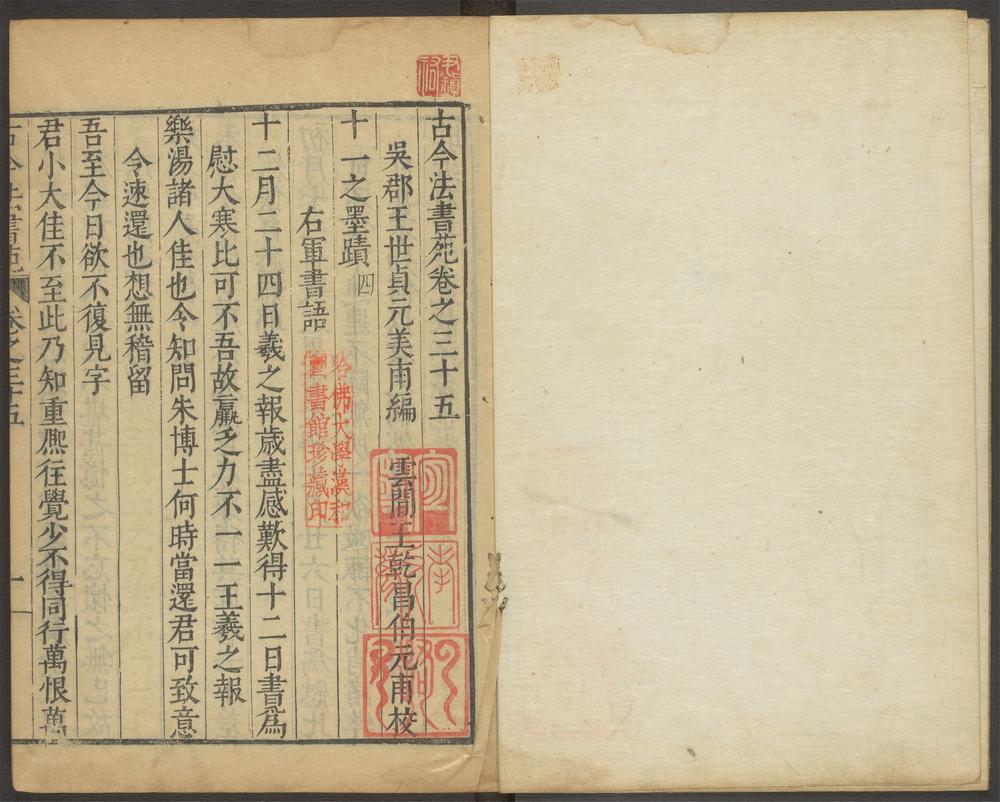 古今法書苑卷之三十五
吳郡王世貞元美甫編 雲間王乾昌伯元甫校
十一之墨蹟四
右軍書語
十二月二十四日羲之報歲盡感歎得十二日書爲
慰大寒比可不吾故羸乏力不一一王羲之報
樂湯諸人佳也今知問朱博士何時當還君可致意
令速還也想無稽留
吾至今日欲不復見字
君小大佳不至此乃知重熈往覺少不得同行萬恨萬
古今法書苑 卷之三十五 一
哈佛大學漢和
圖書館珍藏印